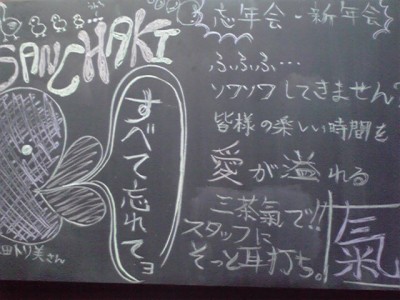 SANCHAKI
忘年会・新年会
ふふふ…
ソワソワしてきません?
皆様の楽しい時間を
愛が溢れる
三茶氣で!!
スタッフに
そっと耳打ち。
氣
すべて忘れてョ
田トリ美さん